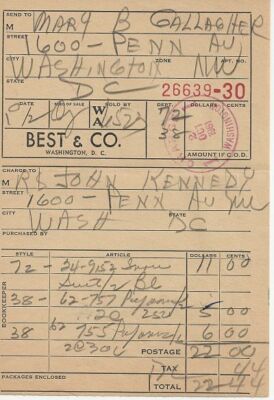 SEND TO
M MARY B GALLAGHER
STREET 1600-PENN AV
CITY ZONE APT. NO.
WASHINGTON NW
STATE DC
26639-30
DATE KIND OF SALE SOLD BY DEPT. DOLLARS CENTS
WA 152 72
38
BEST & CO.
WASHINGTON, D. C.
AMOUNT IF C.O.D.
CHARGE TO
M JOHN KENNEDY
STREET 1600-PENN AV NW
CITY WASH STATE DC
PURCHASED BY
STYLE ARTICLE DOLLARS CENTS
72- 34-9152 11 00
Suit/2 Bl
38- 62-757 Pajamas
5 00
38 62 755 Pajamas 6 00
2@300
POSTAGE 22 00
TAX 44
PACKAGES ENCLOSED TOTAL 22 44
BOOKKEEPER